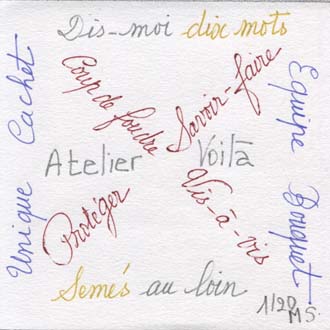 Dis-moi dix mots
Cachet
Coup de foudre
Savoir-faire
Equipe
Atelier
Voilà
Unique
Protéger
Vis-à-vis
Bouquet
Semés au loin
1/20 MS.